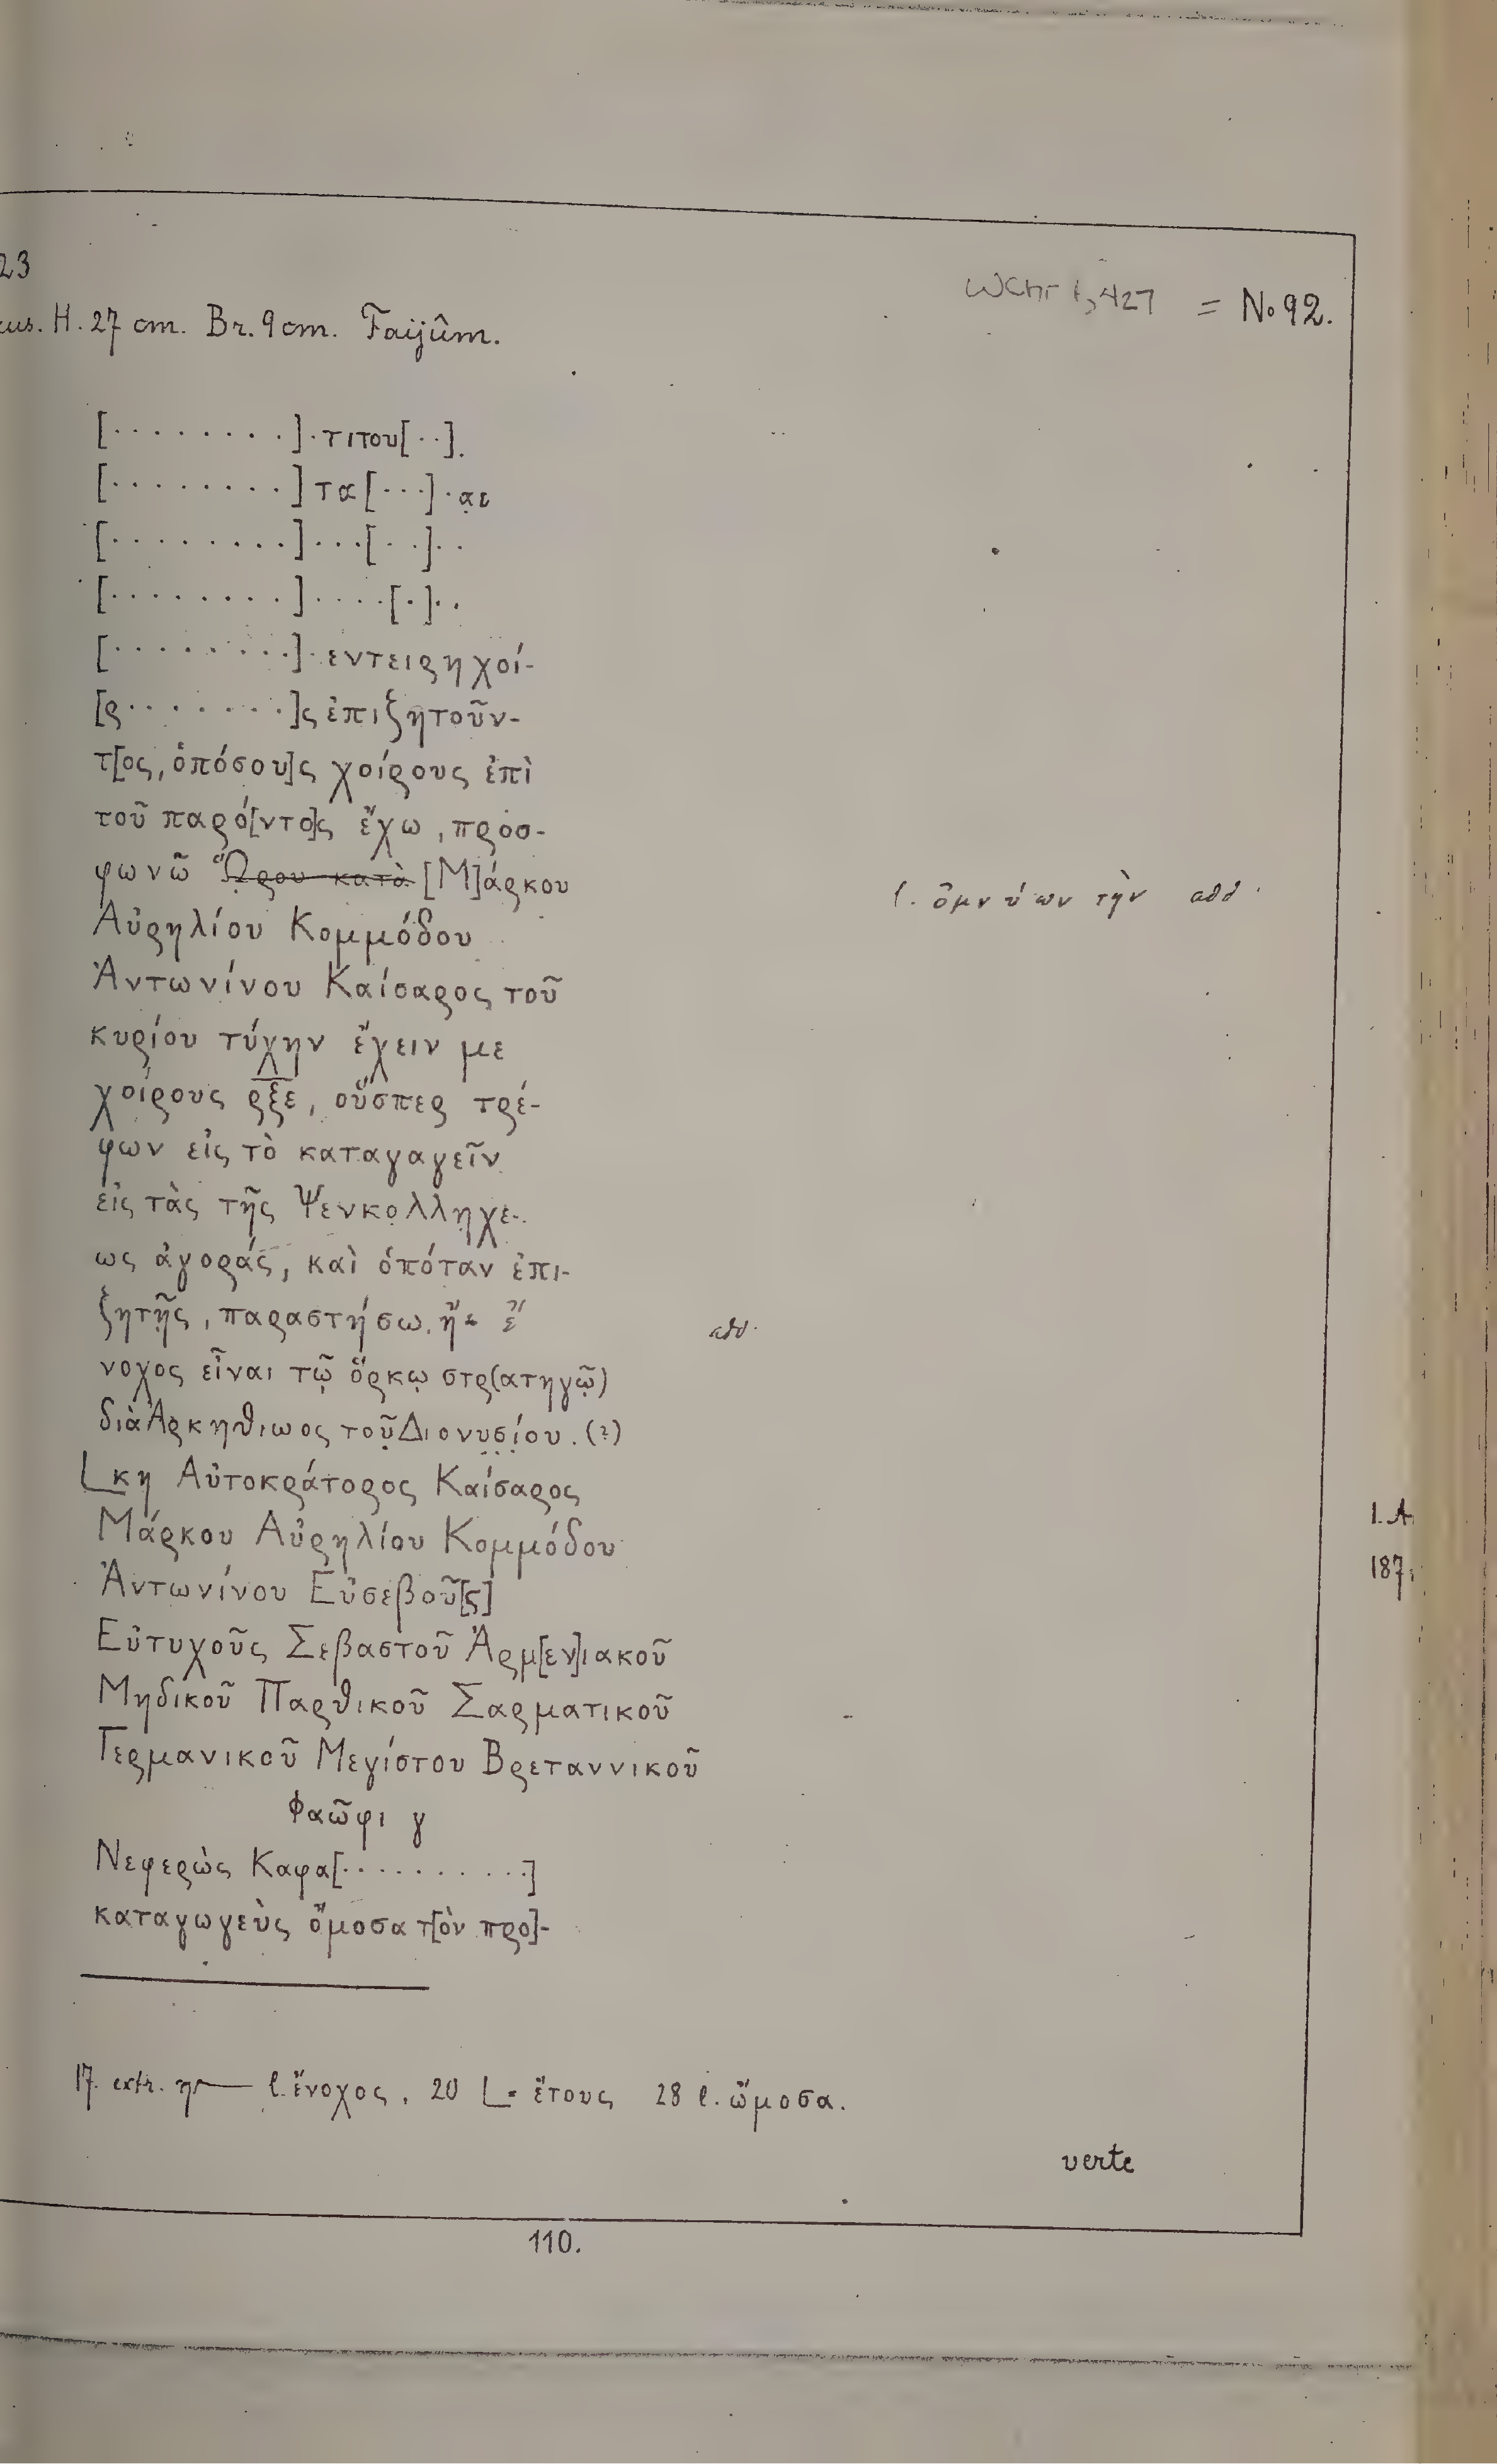 23
WChr 1, 427 = No 92.
cus. H. 27 cm. Br. 9 cm. Faijûm.
[· · · · · · · · ·]·τιτου[· ·].
[· · · · · · · · ·]τα[· · ·]·αι
[· · · · · · · · ·]· · ·[· ·]· ·
[· · · · · · · · ·]· · · ·[·]· ·
[· · · · · · · · ·]·εντειρη χοί-
[ρ· · · · · · ·]ς ἐπιζητοῦν-
τ[ος, ὁπόσου]ς χοίρους ἐπὶ
τοῦ παρό[ντο]ς ἔχω, προσ-
φωνῶ Ὥρου κατὰ [Μ]άρκου l. ὀμνύων τὴν add.
Αὐρηλίου Κομμόδου
Ἀντωνίνου Καίσαρος τοῦ
κυρίου τύχην ἔχειν με
χοίρους ρξε, οὕσπερ τρέ-
φων εἰς τὸ καταγαγεῖν
εἰς τὰς τῆς Ψενκολληχε-
ως ἀγοράς, καὶ ὁπόταν ἐπι-
ζητῇς, παραστήσω. ἢ ἔ add.
νοχος εἶναι τῷ ὅρκῳ στρ(ατηγῷ)
διὰ Ἀρκηθιωος τοῦ Διονυσίου. (?)
L κη Αὐτοκράτορος Καίσαρος
Μάρκου Αὐρηλίου Κομμόδου
Ἀντωνίνου Εὐσεβοῦ[ς]
Εὐτυχοῦς Σεβαστοῦ Ἀρμ[εν]ιακοῦ
Μηδικοῦ Παρθικοῦ Σαρματικοῦ
Γερμανικοῦ Μεγίστου Βρεταννικοῦ
Φαῶφι γ
Νεφερὼς Καφα[· · · · · · · · · ·]
καταγωγεὺς ὄμοσα τ[ὸν προ]-
17. extr. η l. ἔνοχος. 20 L = ἔτους 28 l. ὤμοσα.
verte
110.
1. A
187